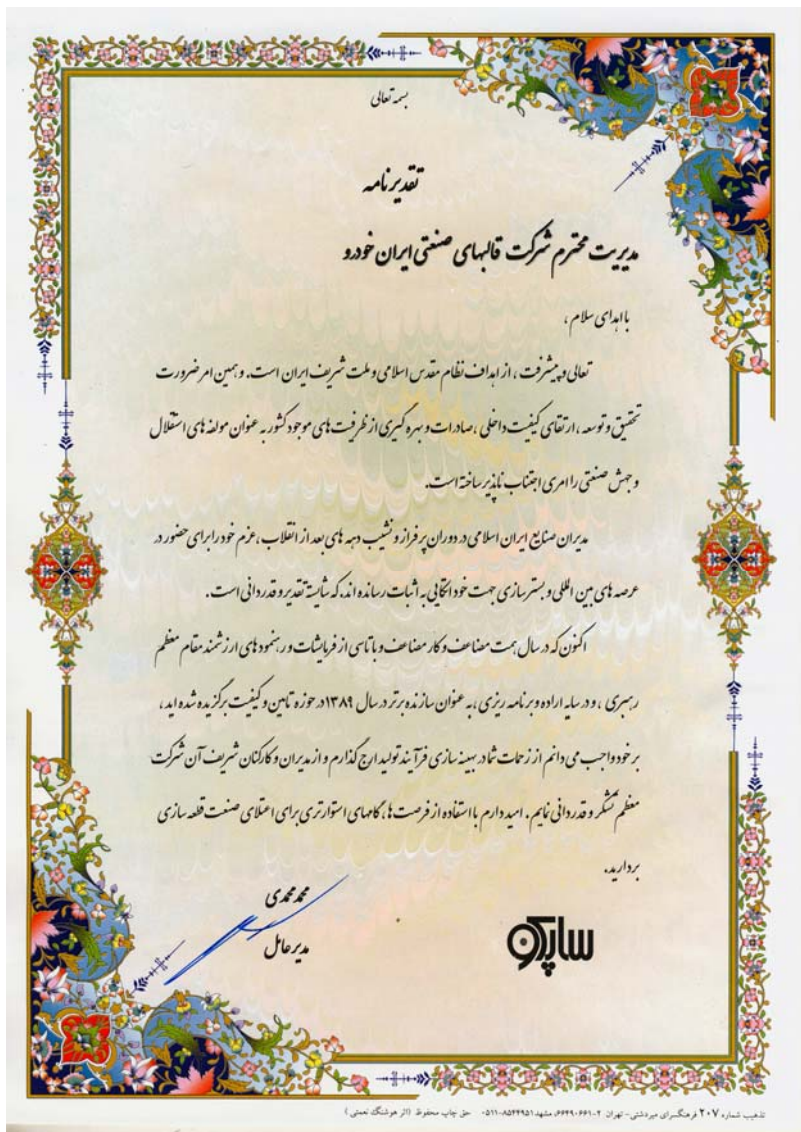 بسمه تعالی
تقدیرنامه
مدیریت محترم شرکت قالبهای صنعتی ایران خودرو
با اهدای سلام ،
تعالی و پیشرفت ، از اهداف نظام مقدس اسلامی و ملت شریف ایران است. و همین امر ضرورت
تحقیق و توسعه ، ارتقای کیفیت داخلی ، صادرات و بهره گیری از ظرفیت های موجود کشور به عنوان مولفه های استقلال
و جهش صنعتی را امری اجتناب ناپذیر ساخته است.
مدیران صنایع ایران اسلامی در دوران پر فراز و نشیب دهه های بعد از انقلاب ، عزم خود را برای حضور در
عرصه های بین المللی و بسترسازی جهت خود اتکایی به اثبات رسانده اند. که شایسته تقدیر و قدردانی است.
اکنون که در سال همت مضاعف و کار مضاعف و با تاسی از فرمایشات و رهنمودهای ارزشمند مقام معظم
رهبری ، و در سایه اراده و برنامه ریزی ، به عنوان سازنده برتر در سال ۱۳۸۹ در حوزه تامین و کیفیت برگزیده شده اید ،
بر خود واجب می دانم از زحمات شما در بهینه سازی فرآیند تولید ارج گذارم و از مدیران و کارکنان شریف آن شرکت
معظم تشکر و قدردانی نمایم. امید دارم با استفاده از فرصت ها ، گامهای استوارتری برای اعتلای صنعت قطعه سازی
بردارید.
محمد محمدی
مدیرعامل
ساپکو
تذهیب شماره ۲۰۷ فرهنگسرای میردشتی - تهران ۲-۶۶۴۹۰۶۶۱، مشهد ۸۵۴۴۹۵۱-۰۵۱۱ حق چاپ محفوظ (اثر هوشنگ نعمتی)